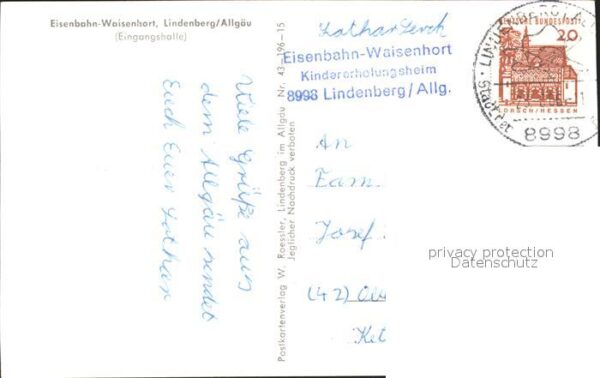 Eisenbahn-Waisenhort, Lindenberg/Allgäu
(Eingangshalle)
Viele Grüße aus
dem Allgäu sendet
Euch Euer Lothar
Postkartenverlag W. Roessler, Lindenberg im Allgäu Nr. 43-196-15
Jeglicher Nachdruck verboten
Lothar
Eisenbahn-Waisenhort
Kindererholungsheim
8998 Lindenberg/Allg.
DEUTSCHE BUNDESPOST
20
LORSCH/HESSEN
8998
An
Fam.
Josef
(42)
privacy protection
Datenschutz